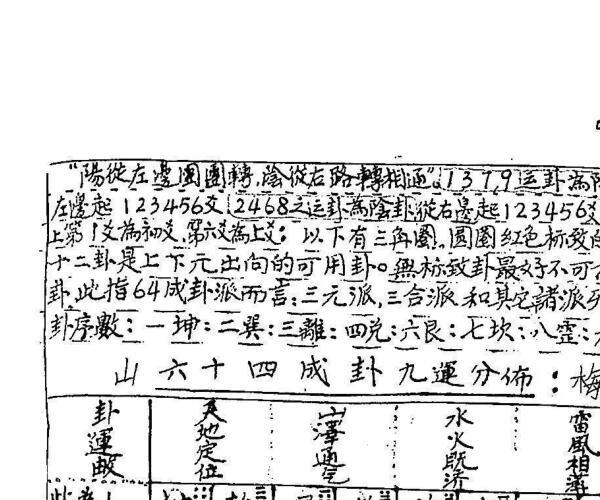 "陽從左邊團團轉,陰從右路轉相通"。1379运卦為陽
左邊起123456爻 2468之运卦為陰卦 從右邊起123456爻
上第1爻為初爻,第六爻為上爻: 以下有三角圈。圓圈红色标致的
十二卦是上下元出向的可用卦。無标致卦最好不可
卦,此指64成卦派而言:三元派,三合派 和其它諸派
卦序數:一坤:二巽:三離:四兌:六艮:七坎:八震:
山 六十四成卦九運分佈:梅
卦運
天地定位
山澤通气
水火既济
雷風相